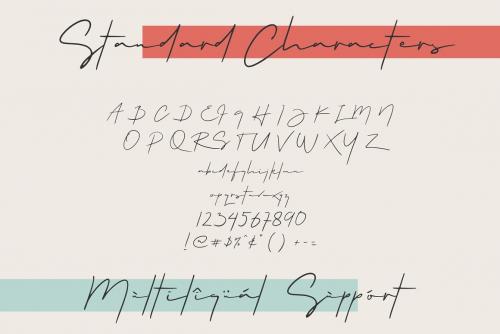 Standard Characters
A B C D E F G H I J K L M N
O P Q R S T U V W X Y Z
abcdefghijklmn
opqrstuvwxyz
1234567890
!@#$%^&*()+-=
Mùltilîgüál Sùppórt